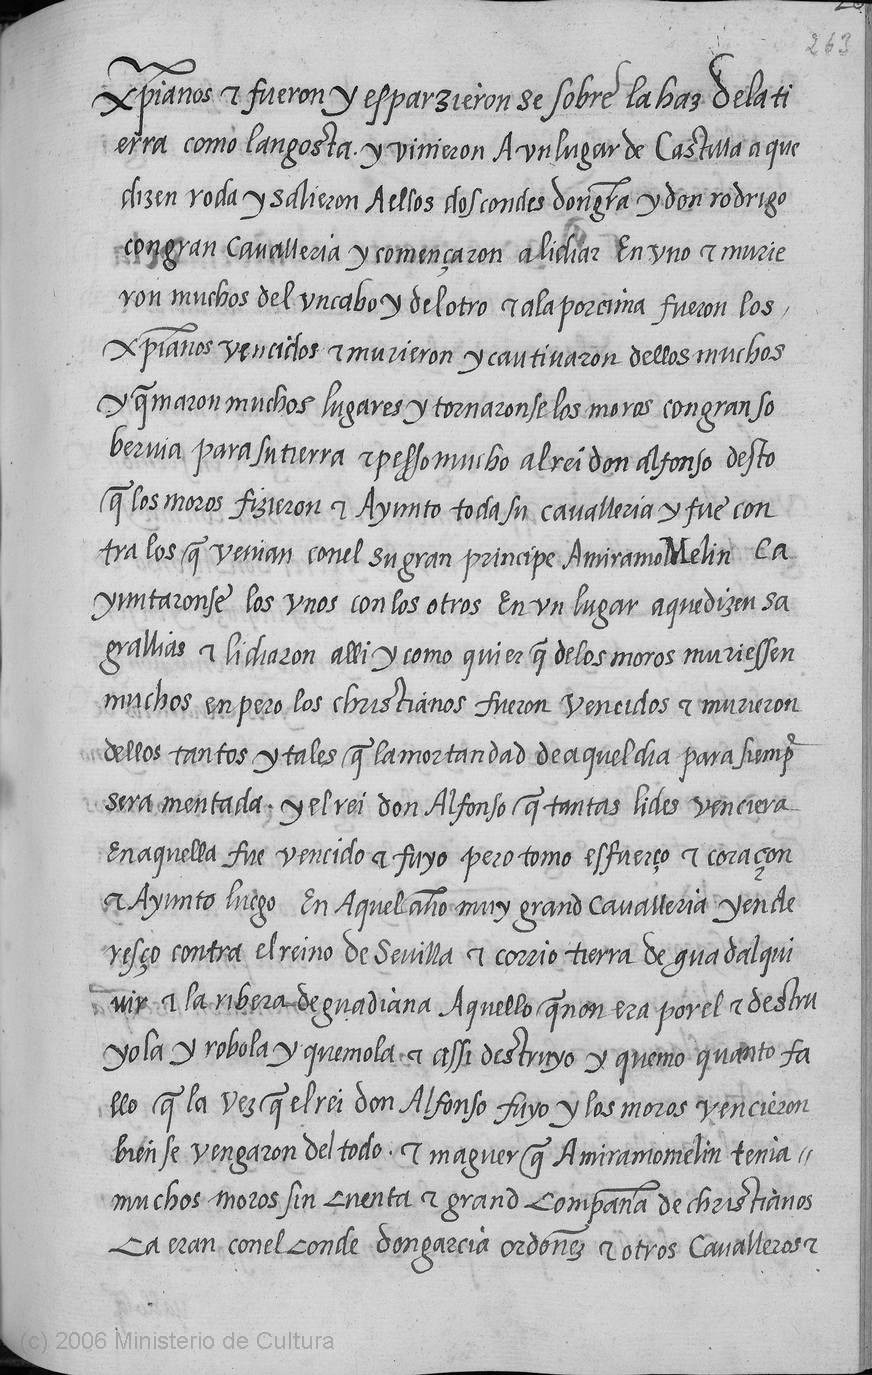 263
xp̃ianos ⁊ fueron y esparzieron se sobre la haz de la ti
erra como langosta. y vinieron A vn lugar de Castilla a que
dizen roda y salieron A ellos dos condes don gr̃a y don rodrigo
con gran Cavalleria y començaron a lidiar En vno ⁊ murie
ron muchos del vn cabo y del otro ⁊ ala por cima fueron los
xp̃ianos vencidos ⁊ murieron y cautivaron dellos muchos
y q̃maron muchos lugares y tornaronse los moros con gran so
bervia para su tierra ⁊ pesso mucho al rei don alfonso desto
q̃ los moros fizieron ⁊ Ayunto toda su cavalleria y fue con
tra los q̃ venian con el su gran principe AmiramoMelin Ca
yuntaronse los vnos con los otros En vn lugar a que dizen sa
grallias ⁊ lidiaron alli y como quier q̃ de los moros muriessen
muchos en pero los christianos fueron vencidos ⁊ murieron
dellos tantos y tales q̃ la mortandad de aquel dia para siemp̃
sera mentada. y el rei don Alfonso q̃ tantas lides venciera
En aquella fue vencido ⁊ fuyo pero tomo esfuerço ⁊ coraçon
⁊ Ayunto luego En Aquel año muy grand Cavalleria y ende
resço contra el reino de Sevilla ⁊ corrio tierra de guadalqui
vir ⁊ la ribera de guadiana Aquello q̃ non era por el ⁊ destru
yola y robola y quemola ⁊ assi destruyo y quemo quanto fa
llo q̃ la vez q̃ el rei don Alfonso fuyo y los moros vencieron
bien se vengaron del todo. ⁊ maguer q̃ Amiramomelin tenia
muchos moros sin cuenta ⁊ grand compaña de christianos
Ca eran con el conde don garcia ordoñez ⁊ otros Cavalleros ⁊
(c) 2006 Ministerio de Cultura